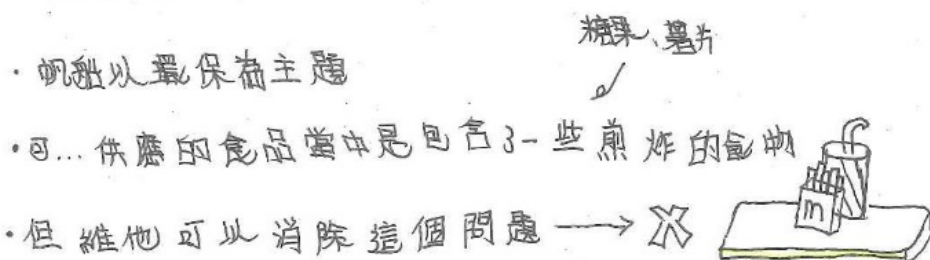 糖果、薯片
·帆船以環保為主題
·可...供應的食品當中是包含了一些煎炸的食物
·但維他可以消除這個問題 → X
m